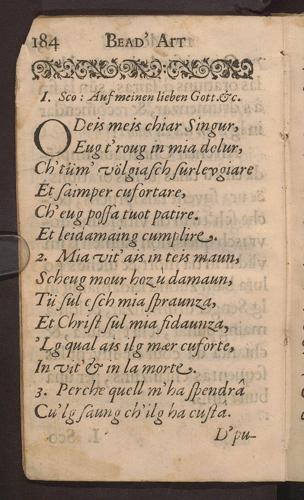 184 BEAD' ART
I. Sco: Auf meinen lieben Gott. &c.
O Deis meis chiar Singur,
Eug t'roug in mia dolur,
Ch'tüm' völgiasch surlevgiare
Et saimper cufortare,
Ch'eug possa tuot patire.
Et leidamaing cumplire.
2. Mia vit' ais in teis maun,
Scheug mour hoz ù damaun,
Tü sul esch mia spraunza,
Et Christ sul mia fidaunza,
'Lg qual ais ilg mær cuforte,
In vit' & in la morte.
3. Perche quell m'ha spendrâ
Cu'lg saung ch'ilg ha custa.
D'pu-